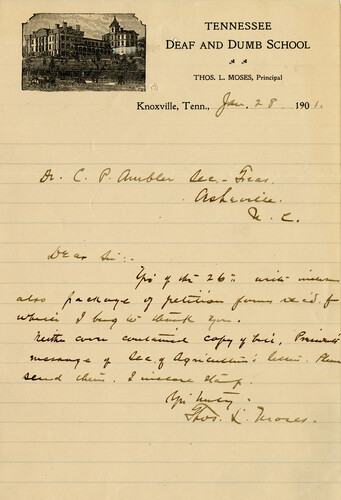 TENNESSEE
DEAF AND DUMB SCHOOL
THOS. L. MOSES, Principal
Knoxville, Tenn., Jan. 28 1901.
Dr. C. P. Ambler Sec-Treas.
Asheville,
N. C.
Dear Sir:-
Yrs of the 26th with
also package of petition forms rec'd. for
which I beg to thank you.
Neither cover contained copy of bill, President's
message or Sec. of Agriculture's letter. Please
send them. I inclose stamp.
Yrs truly,
Thos. L. Moses.